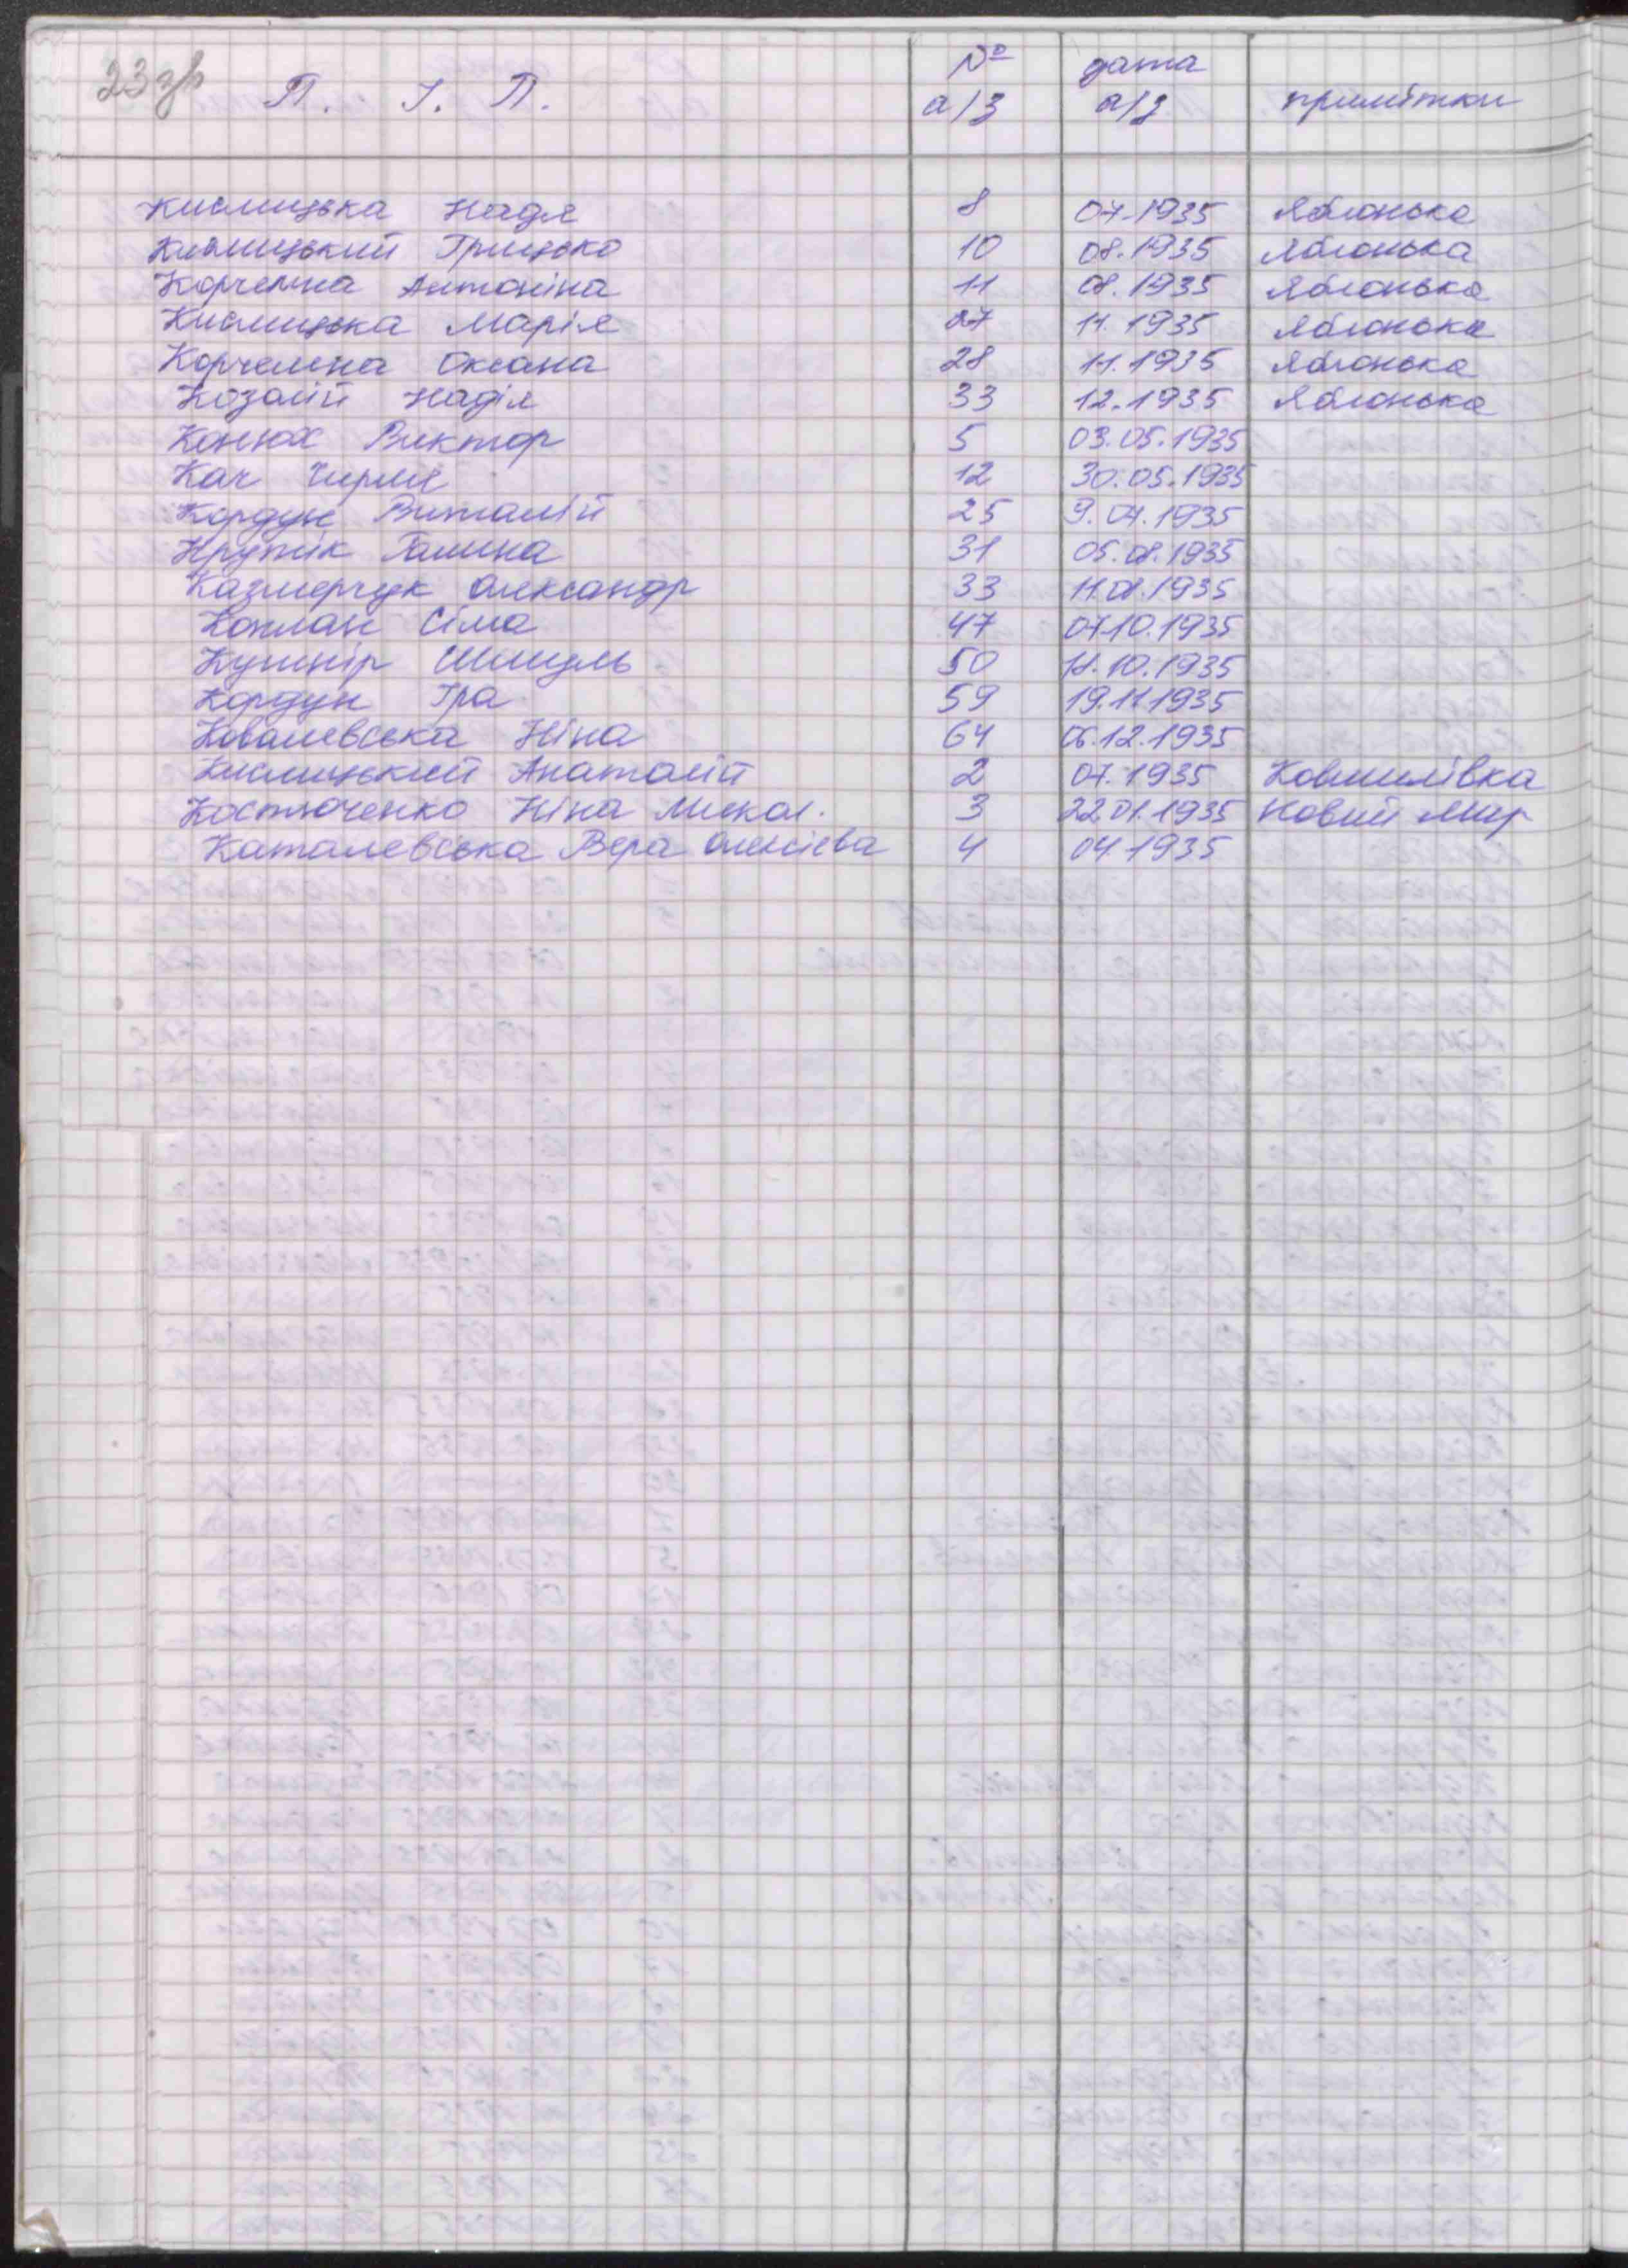 23зв
П. І. П. № а/з дата а/з примітки
Кислицька Надя 8 07.1935 Яблонька
Кислицький Грицько 10 08.1935 Яблонька
Корчемна Антоніна 11 08.1935 Яблонька
Кислицька Марія 27 11.1935 Яблонька
Корчемна Оксана 28 11.1935 Яблонька
Козолій Надія 33 12.1935 Яблонька
Конюх Виктор 5 03.05.1935
Кач 12 30.05.1935
Кордун Виталій 25 9.07.1935
Галина 31 05.08.1935
Казмерчук Олександр 33 11.08.1935
Коплан Сіма 47 07.10.1935
Кушнір Шмуль 50 11.10.1935
Кордун Іра 59 19.11.1935
Ковалевська Ніна 64 06.12.1935
Кислицький Анатолій 2 07.1935
Костюченко Ніна Микол. 3 22.01.1935 Новий Мир
Каталевська Вера Олексіева 4 04.1935